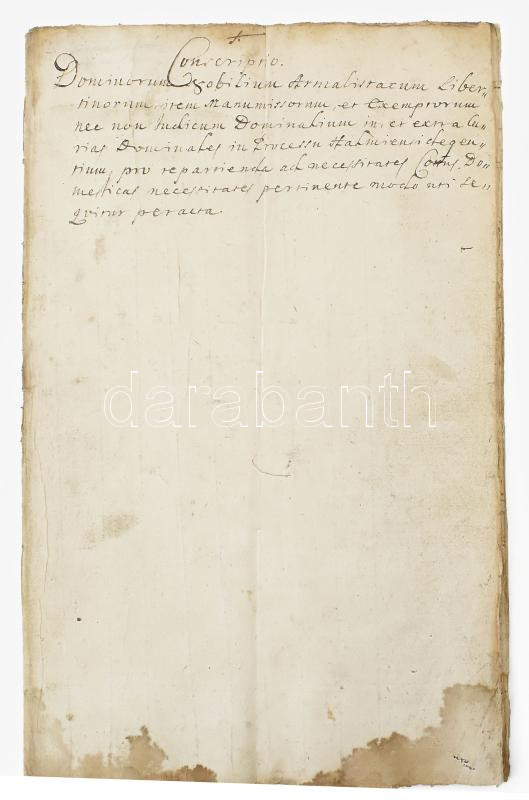 Conscriptio.
Dominorum Nobilium Armalistarum Liber„
tinorum, item Manumissorum, et Exemptorum
nec non Iudicum Dominalium in, et extra Cu„
rias Dominales in Processu Halmiensi degen„
tium, pro repartienda ad necessitates Cottus, Do„
mesticas necessitates pertinente modo uti se„
quitur peracta.
darabanth